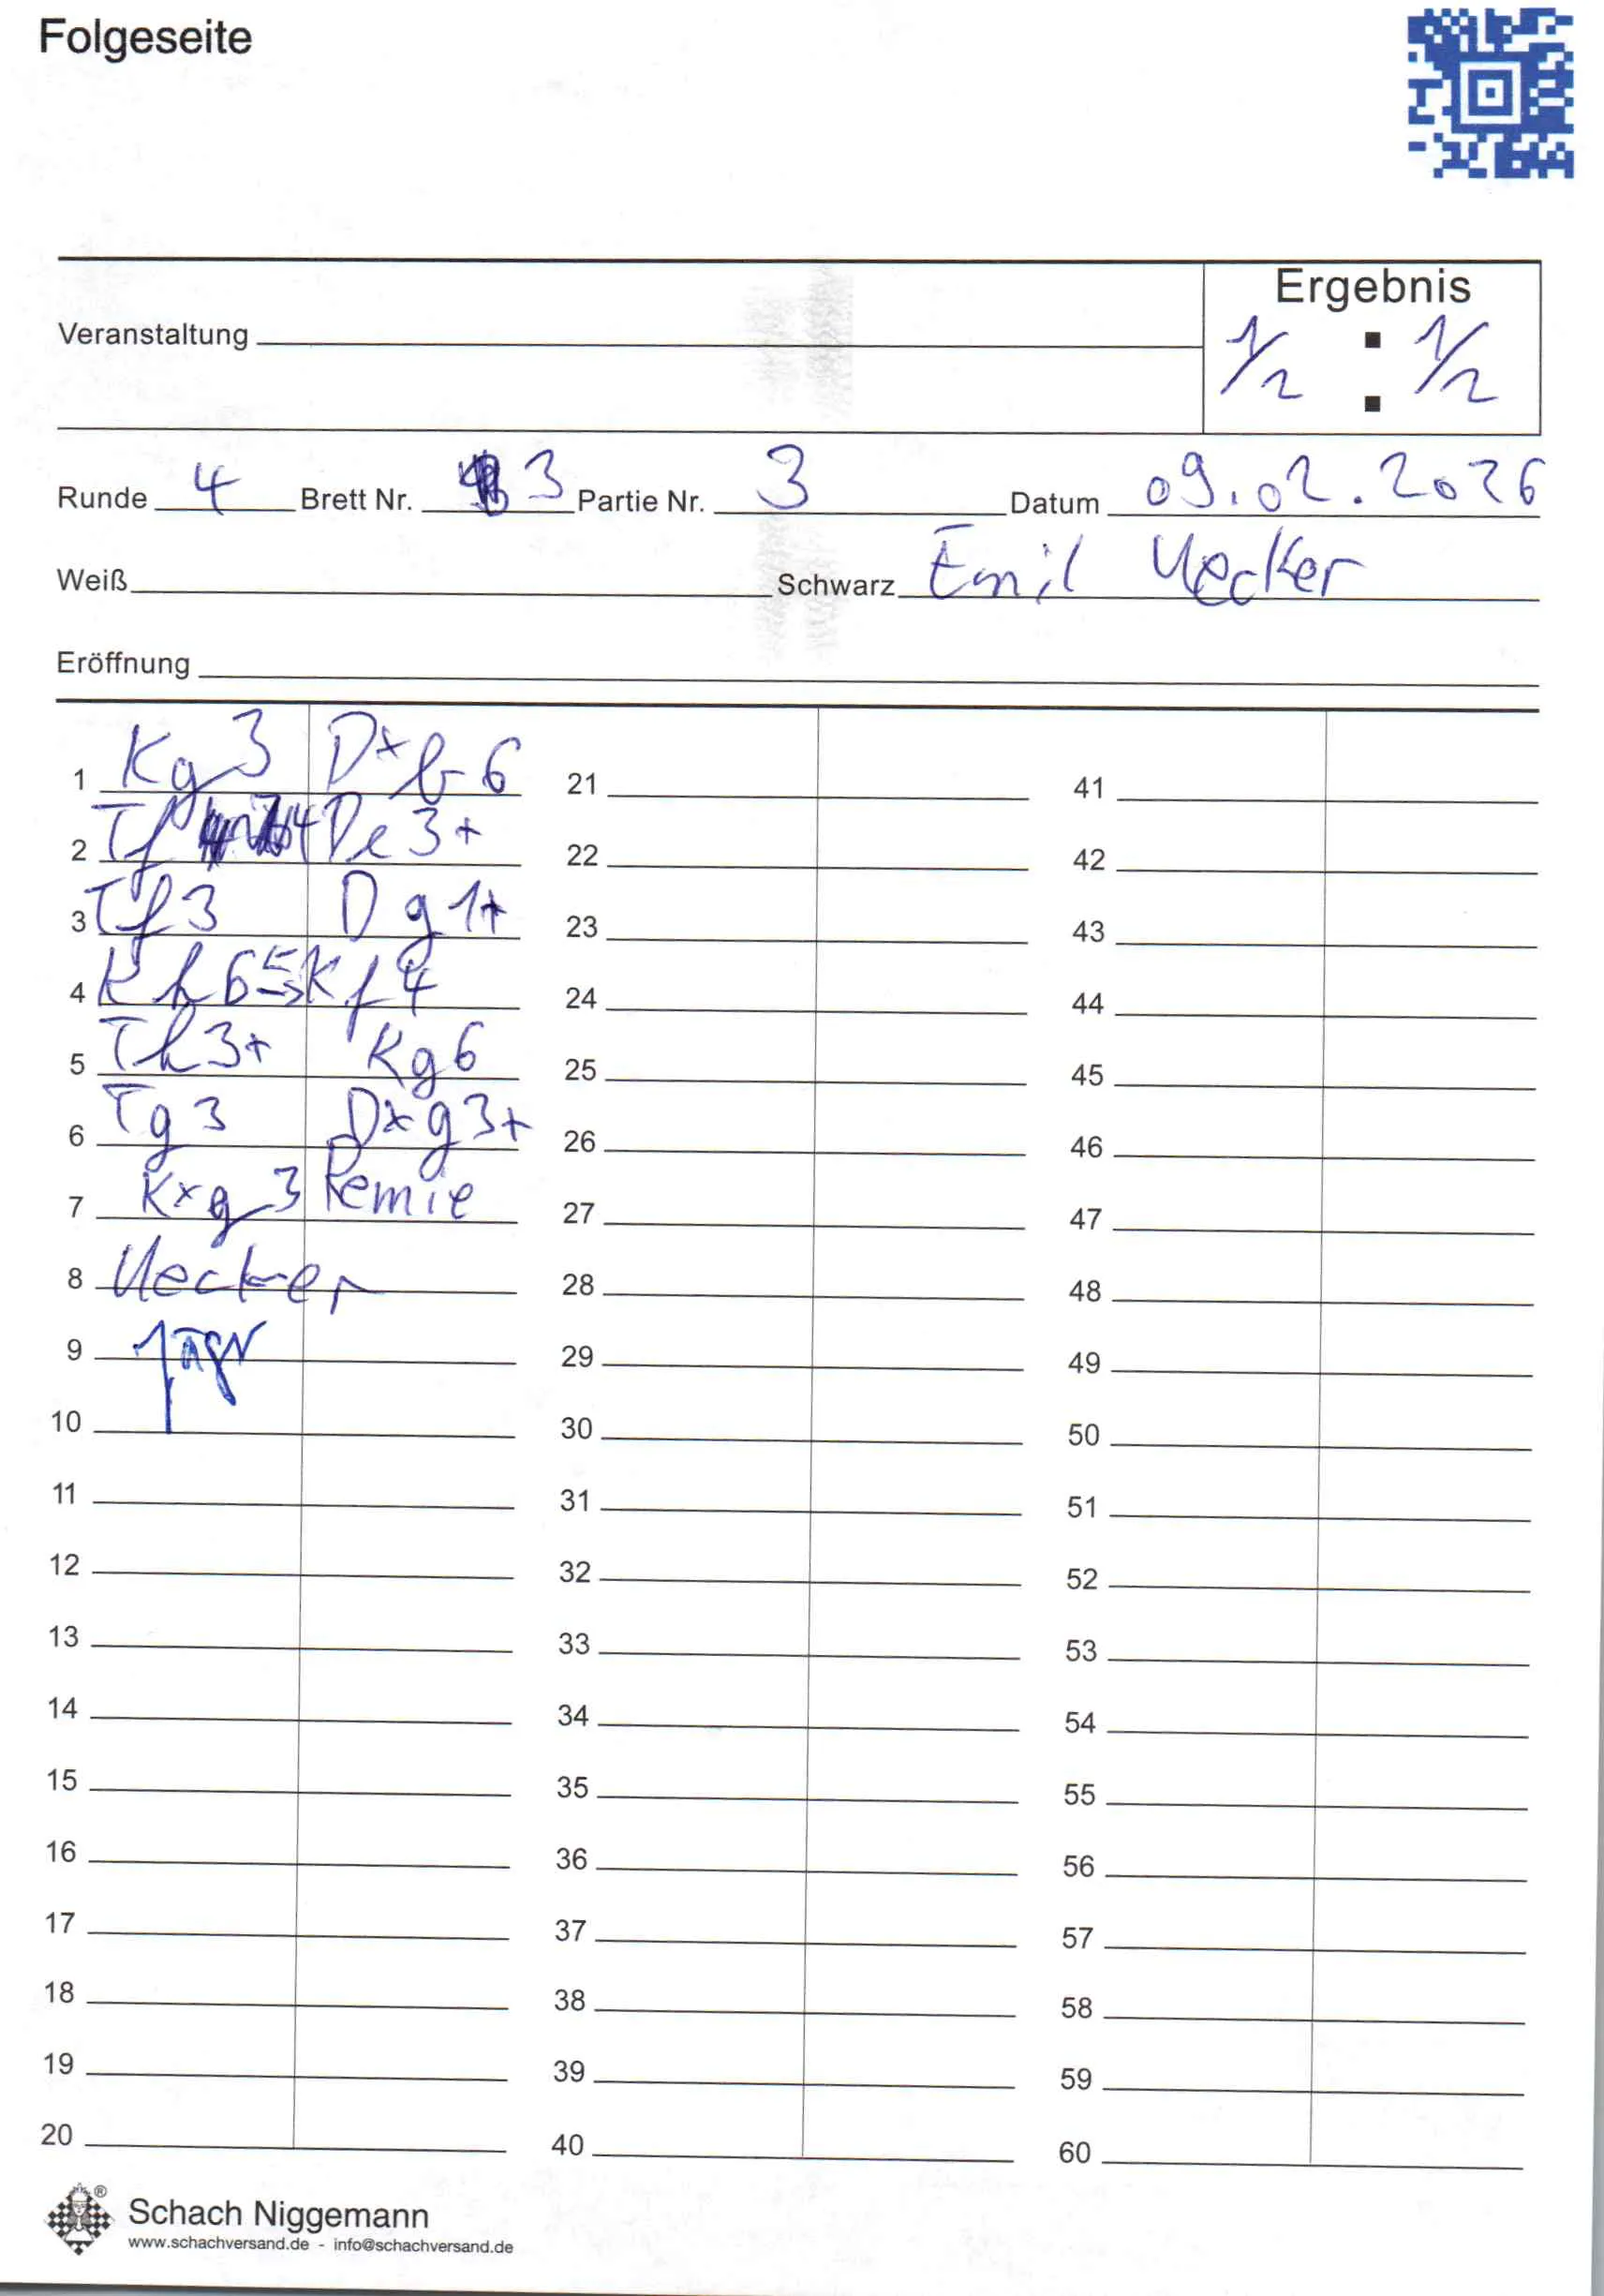 Folgeseite
Ergebnis
Veranstaltung
1/2 : 1/2
Runde 4 Brett Nr. 3 Partie Nr. 3 Datum 09.02.2026
Weiß Schwarz Emil Uecker
Eröffnung
1 Kg3 Dxb6 21 41
2 Tf4 De3+ 22 42
3 Tf3 Dg1+ 23 43
4 Kf4 24 44
5 Th3+ Kg6 25 45
6 Tg3 Dxg3+ 26 46
7 Kxg3 Remie 27 47
8 Uecker 28 48
9 29 49
10 30 50
11 31 51
12 32 52
13 33 53
14 34 54
15 35 55
16 36 56
17 37 57
18 38 58
19 39 59
20 40 60
® Schach Niggemann
www.schachversand.de - info@schachversand.de